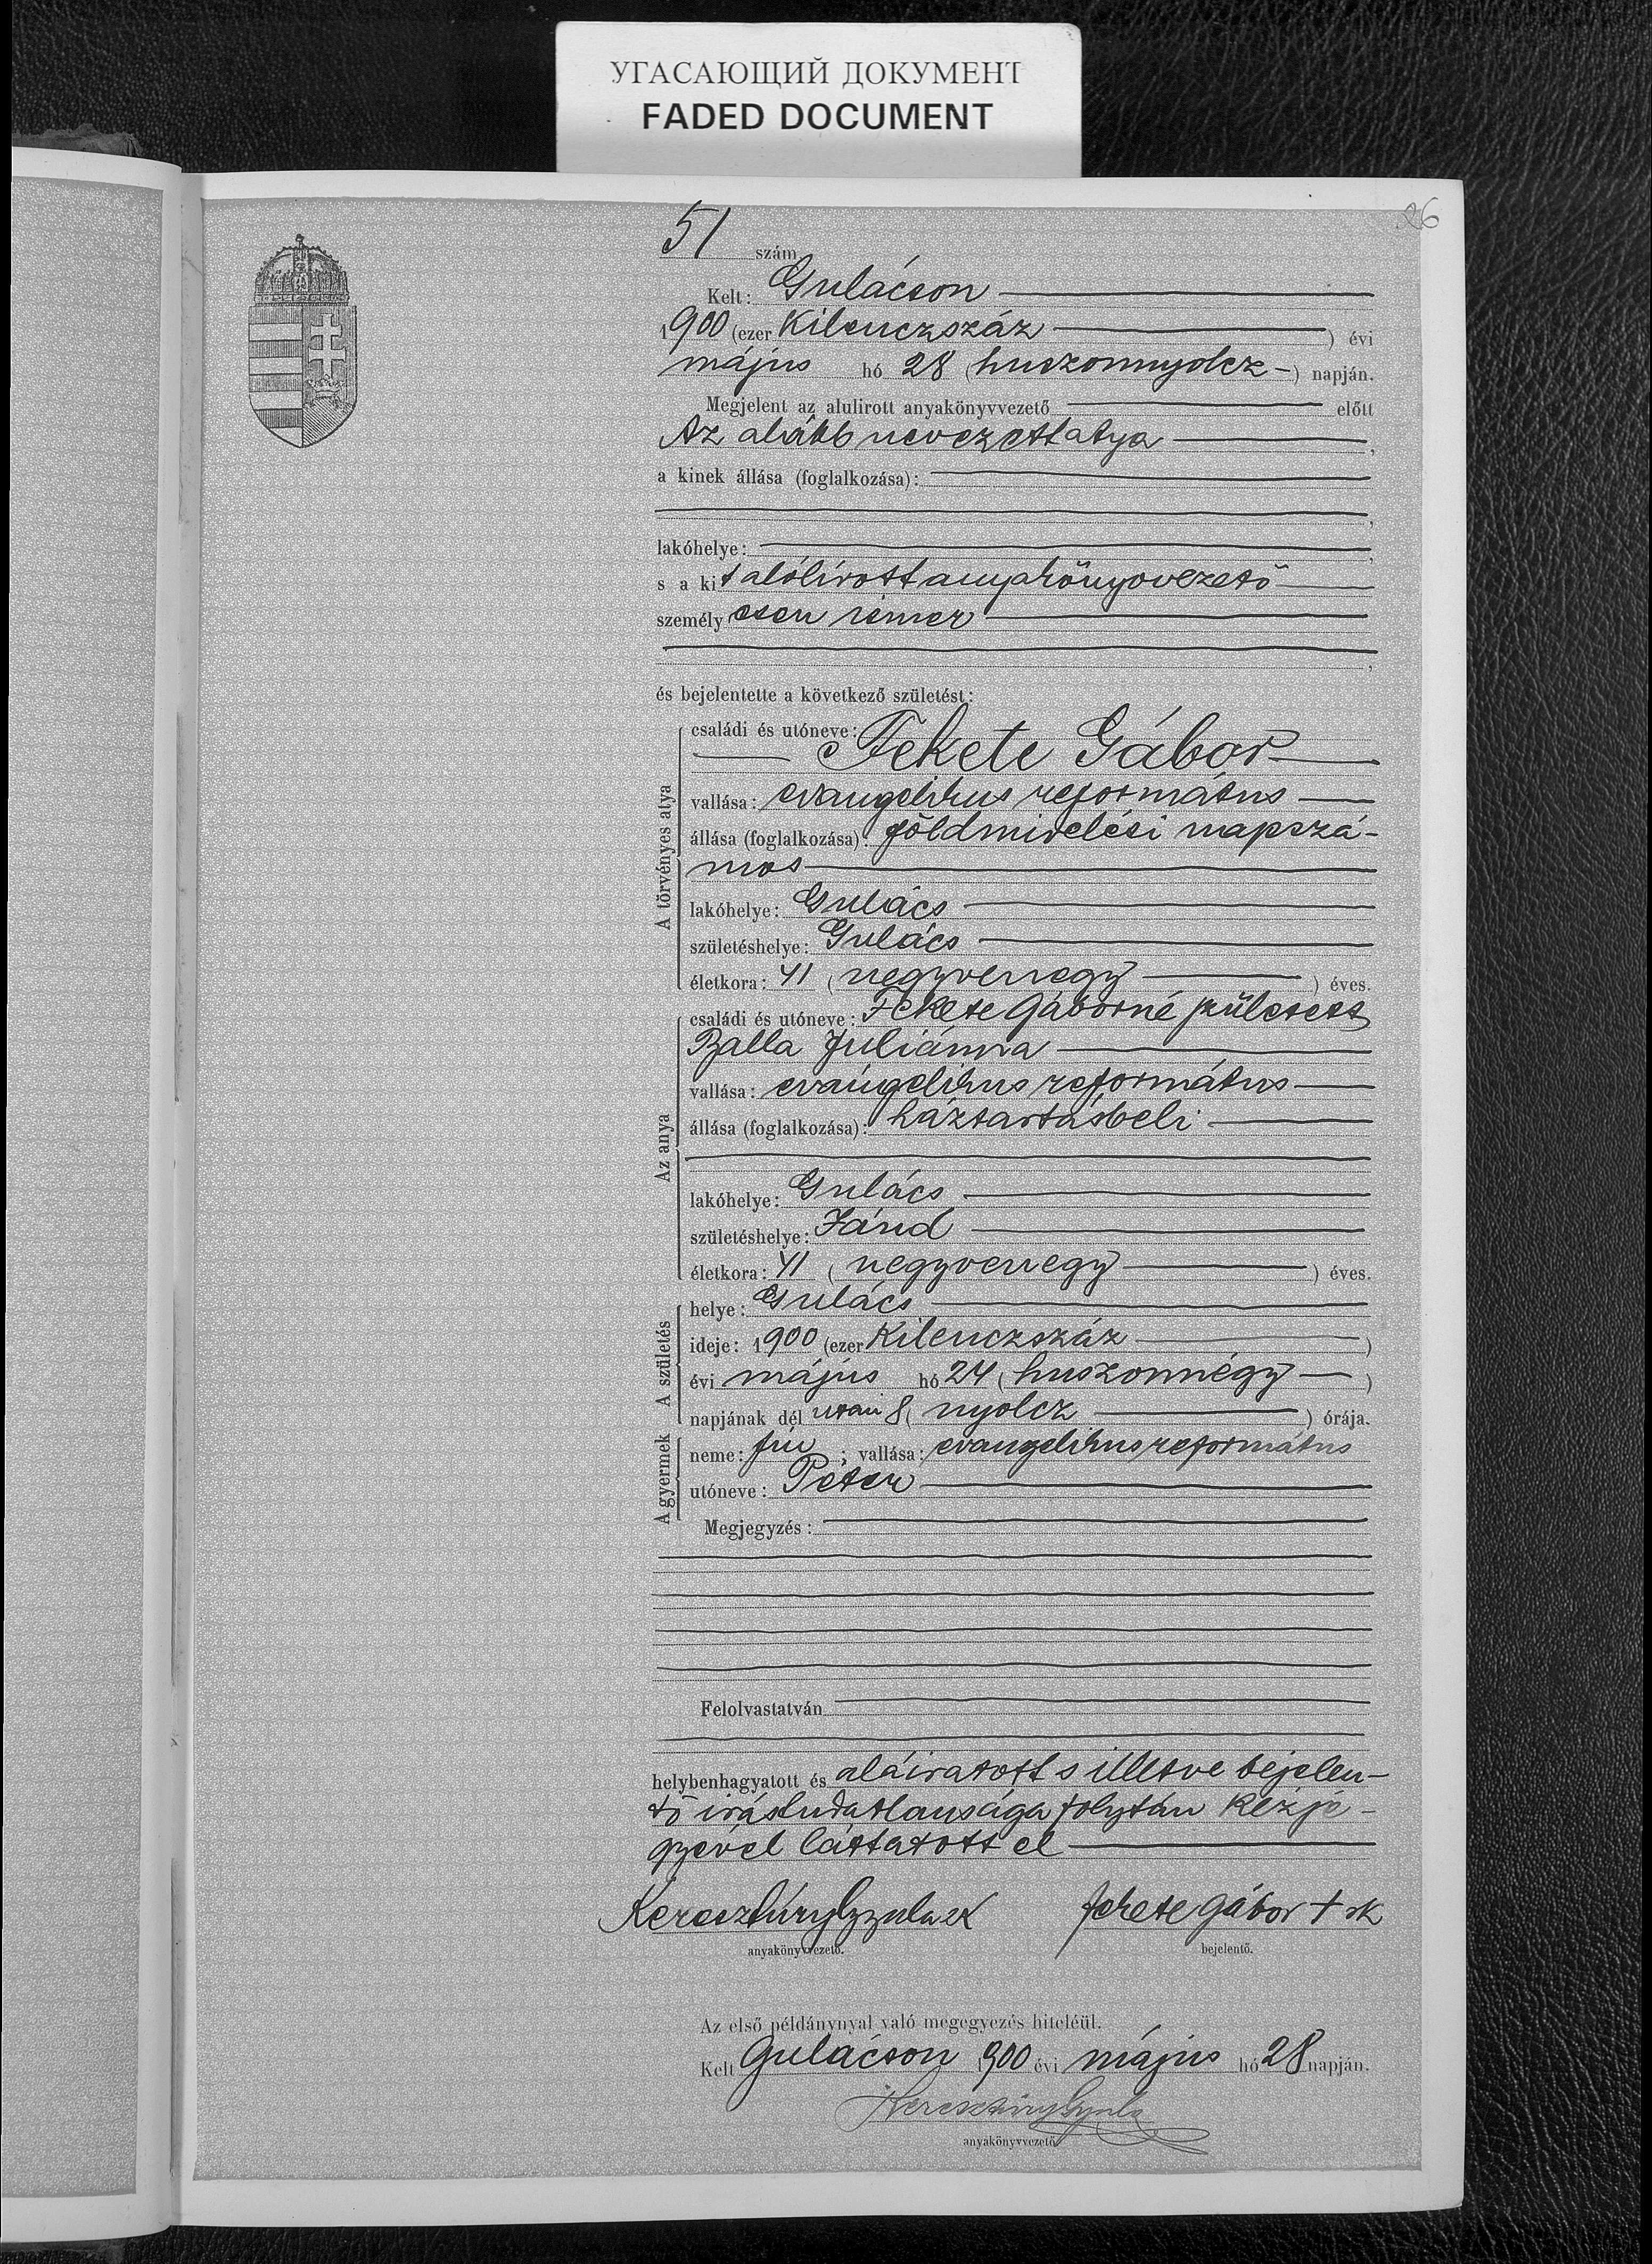 УГАСАЮЩИЙ ДОКУМЕНТ
FADED DOCUMENT
26
51 szám
Kelt: Gulácson
1900 (ezer Kilenczszáz) évi
május hó 28 (huszonnyolcz) napján.
Megjelent az alulirott anyakönyvvezető előtt
Az alább nevezett atya,
a kinek állása (foglalkozása):
lakóhelye:
s a kit alólirott anyakönyvvezető
személyesen ismer
és bejelentette a következő születést:
A törvényes atya
családi és utóneve:
Fekete Gábor
vallása: evangelikus református
állása (foglalkozása): földmivelési napszá-
mos
lakóhelye: Gulács
születéshelye: Gulács
életkora: 41 (negyvenegy) éves.
Az anya
családi és utóneve: Fekete Gáborné született
Balla Juliánna
vallása: evangelikus református
állása (foglalkozása): háztartásbeli
lakóhelye: Gulács
születéshelye: Jánd
életkora: 41 (negyvenegy) éves.
A születés
helye: Gulács
ideje: 1900 (ezer Kilenczszáz)
évi május hó 24 (huszonnégy)
napjának dél után 8 (nyolcz) órája.
A gyermek
neme: fiu; vallása: evangelikus református
utóneve: Péter
Megjegyzés:
Felolvastatván
helybenhagyatott és aláiratott s illetve bejelen-
tő irástudatlansága folytán Kézje-
gyével láttatott el
Keresztúry Gyula sk
Fekete Gábor + sk
anyakönyvvezető.
bejelentő.
Az első példánynyal való megegyezés hiteléül.
Kelt Gulácson 1900 évi május hó 28 napján.
Keresztúry Gyula
anyakönyvvezető